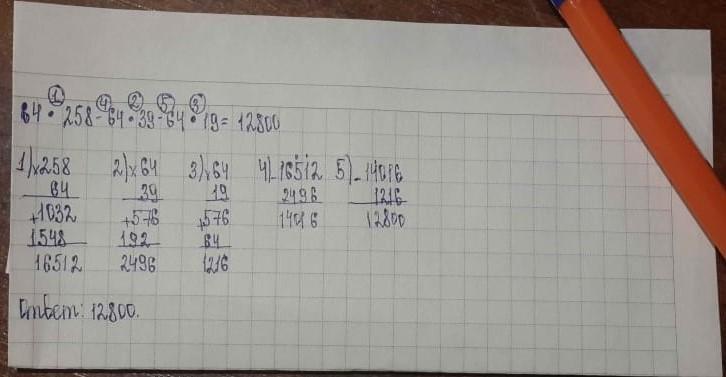 ① ④ ② ⑤ ③
64 · 258 - 64 · 39 - 64 · 19 = 12800
1) ×258 2) ×64 3) ×64 4) -16512 5) -14016
64 39 19 2496 1216
+1032 +576 +576 14016 12800
1548 192 64
16512 2496 1216
Ответ: 12800.